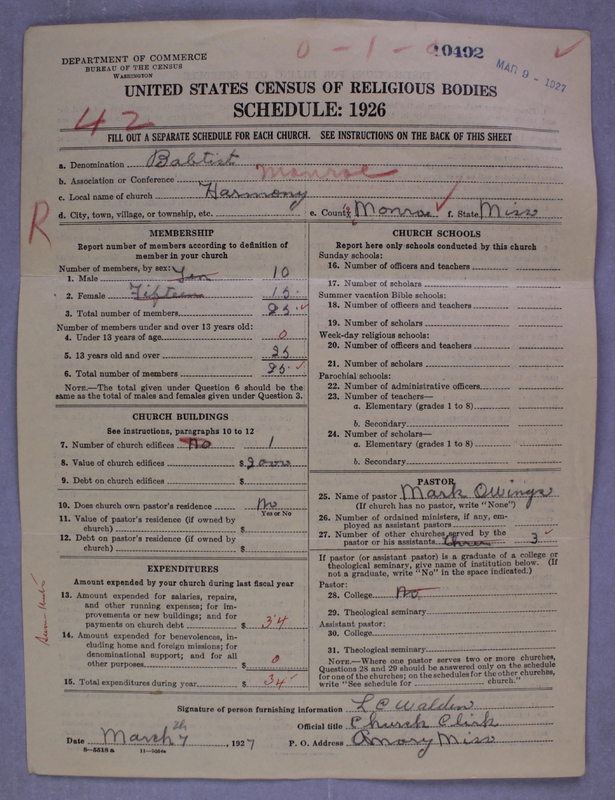 DEPARTMENT OF COMMERCE
BUREAU OF THE CENSUS
WASHINGTON
0 - 1 - 0
10402
MAR 9 - 1927
UNITED STATES CENSUS OF RELIGIOUS BODIES
SCHEDULE: 1926
42
FILL OUT A SEPARATE SCHEDULE FOR EACH CHURCH. SEE INSTRUCTIONS ON THE BACK OF THIS SHEET
a. Denomination Babtist
b. Association or Conference Monroe
c. Local name of church Harmony
d. City, town, village, or township, etc. e. County Monroe f. State Miss
R
MEMBERSHIP
Report number of members according to definition of
member in your church
Number of members, by sex:
1. Male Ten 10
2. Female Fifteen 15
3. Total number of members 25
Number of members under and over 13 years old:
4. Under 13 years of age 0
5. 13 years old and over 25
6. Total number of members 25
NOTE.—The total given under Question 6 should be the
same as the total of males and females given under Question 3.
CHURCH BUILDINGS
See instructions, paragraphs 10 to 12
7. Number of church edifices No 1
8. Value of church edifices $ 2000
9. Debt on church edifices $
10. Does church own pastor's residence No
Yes or No
11. Value of pastor's residence (if owned by
church) $
12. Debt on pastor's residence (if owned by
church) $
EXPENDITURES
Amount expended by your church during last fiscal year
13. Amount expended for salaries, repairs,
and other running expenses; for im-
provements or new buildings; and for
payments on church debt $ 34
14. Amount expended for benevolences, in-
cluding home and foreign missions; for
denominational support; and for all
other purposes $ 0
15. Total expenditures during year $ 34
CHURCH SCHOOLS
Report here only schools conducted by this church
Sunday schools:
16. Number of officers and teachers
17. Number of scholars
Summer vacation Bible schools:
18. Number of officers and teachers
19. Number of scholars
Week-day religious schools:
20. Number of officers and teachers
21. Number of scholars
Parochial schools:
22. Number of administrative officers
23. Number of teachers—
a. Elementary (grades 1 to 8)
b. Secondary
24. Number of scholars—
a. Elementary (grades 1 to 8)
b. Secondary
PASTOR
25. Name of pastor Mark Owings
(If church has no pastor, write "None")
26. Number of ordained ministers, if any, em-
ployed as assistant pastors
27. Number of other churches served by the
pastor or his assistants 3
If pastor (or assistant pastor) is a graduate of a college or
theological seminary, give name of institution below. (If
not a graduate, write "No" in the space indicated.)
Pastor:
28. College No
29. Theological seminary
Assistant pastor:
30. College
31. Theological seminary
NOTE.—Where one pastor serves two or more churches,
Questions 28 and 29 should be answered only on the schedule
for one of the churches; on the schedules for the other churches,
write "See schedule for church."
Signature of person furnishing information L C Walden
Official title Church Clirk
Date March 7 th, 1927 P. O. Address Amory Miss
8-5518 a